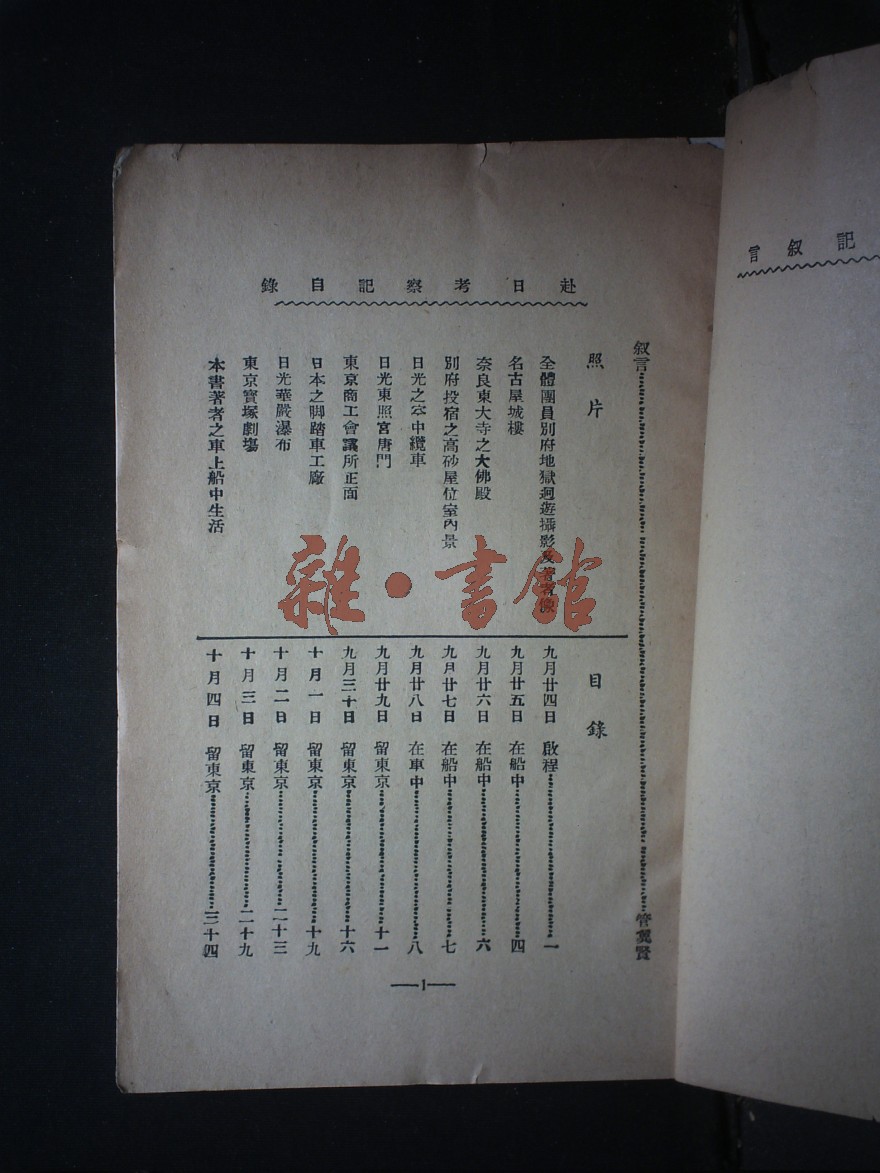 赴日考察記自錄
叙言 管翼賢
照片
全體團員別府地獄迴遊攝影及著者像
名古屋城樓
奈良東大寺之大佛殿
別府投宿之高砂屋位室內景
日光之空中纜車
日光東照宮唐門
東京商工會議所正面
日本之脚踏車工廠
日光華嚴瀑布
東京寶塚劇塲
本書著者之車上船中生活
目錄
九月廿四日 啟程 一
九月廿五日 在船中 四
九月廿六日 在船中 六
九月廿七日 在船中 七
九月廿八日 在車中 八
九月廿九日 留東京 十一
九月三十日 留東京 十六
十月一日 留東京 十九
十月二日 留東京 二十三
十月三日 留東京 二十九
十月四日 留東京 三十四
—1—
記叙言
雜·書館